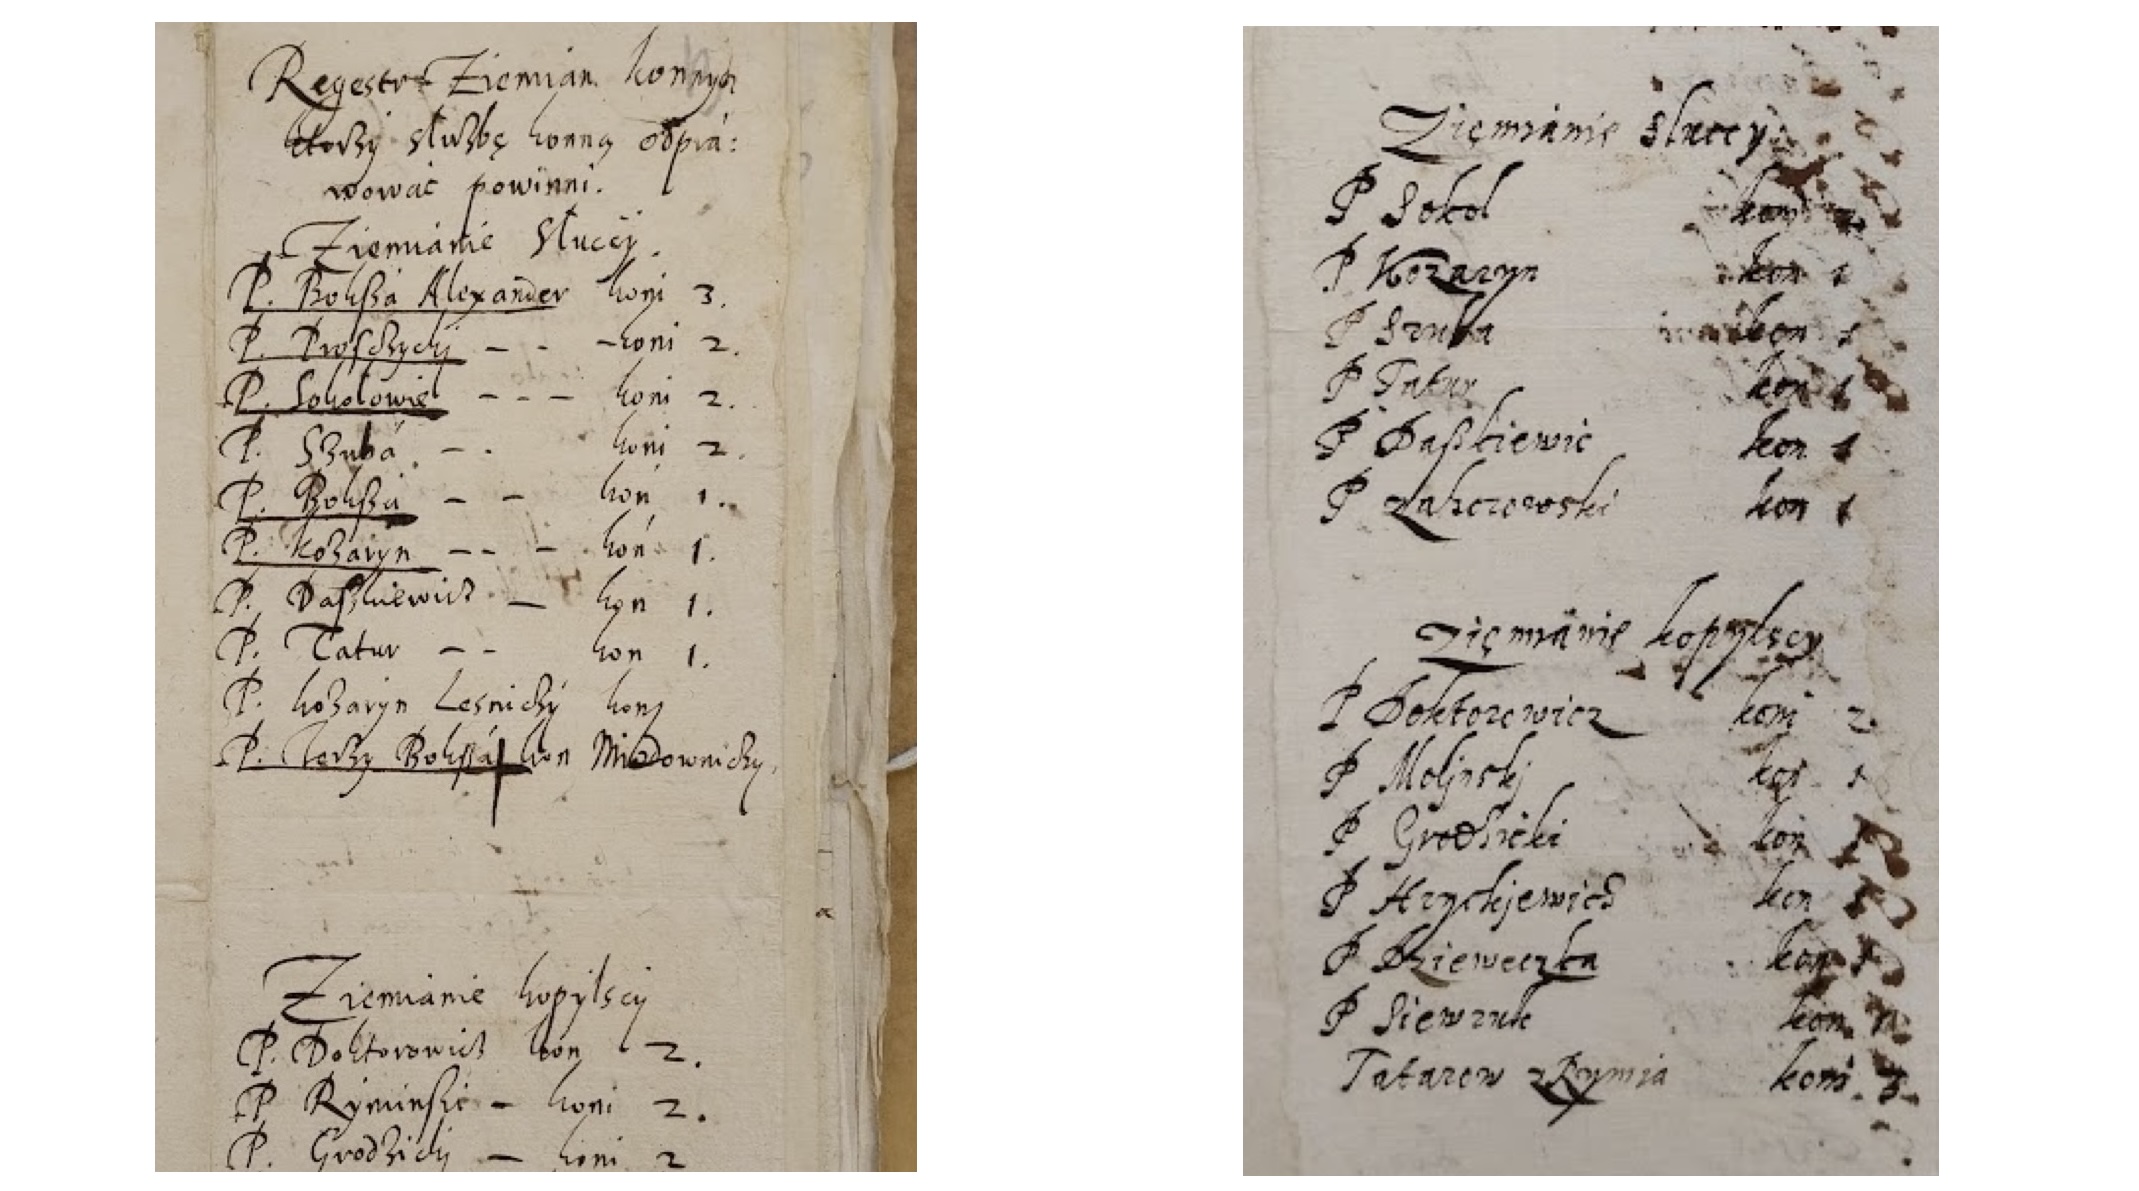 Regestr Ziemian konnych
ktorzy słuzbę konną odprá:
wowác powinni.
Ziemiánie Słuccy.
P. Bohßá Alexander koni 3.
P. Proszycki – – – koni 2.
P. Sokołowie – – – koni 2.
P. Szubá – – koni 2.
P. Bohßá – – koń 1.
P. Kozaryn – – – koń 1.
P. Daßkiewicz – koń 1.
P. Tatur – – kon 1.
P. Kozaryn Lesniczy kon
P. Jerzy Bohßá kon Miodowniczy.
Ziemiánie kopylscy
P. Doktorowicz kon 2.
P Ryminskie – koni 2.
P. Grodzicki – koni 2
Ziemiánie Słuccy
P Sokol koni
P Kozaryn kon 1
P Szuba kon 1
P Tatur kon 1
P Daßkiewic kon 1
P kon 1
Ziemiánie kopylscy
P Doktorowicz koni 2.
P Moljnskj koń 1
P Grodzicki koń 1
P Hryckjewicz kon 1
P Dzieweczka kon 1
P Siewruk kon
Tatarow z Rymia koni. 3.